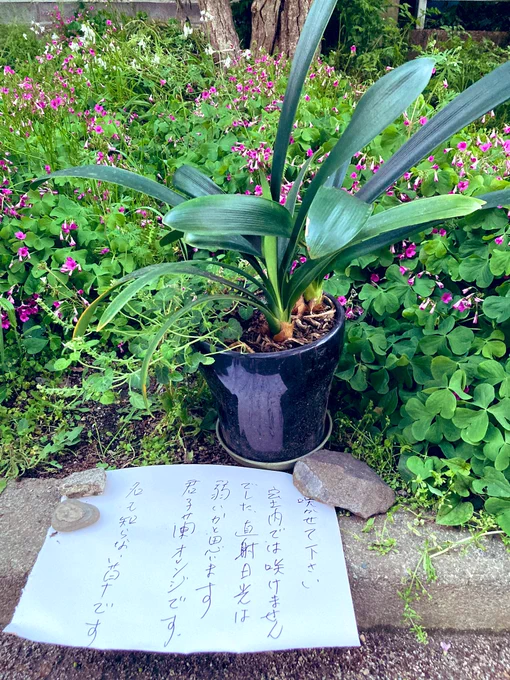 咲かせて下さい
室内では咲けません
でした、直射日光は
弱いかと思います
君子蘭オレンジです.
名も知らない草です